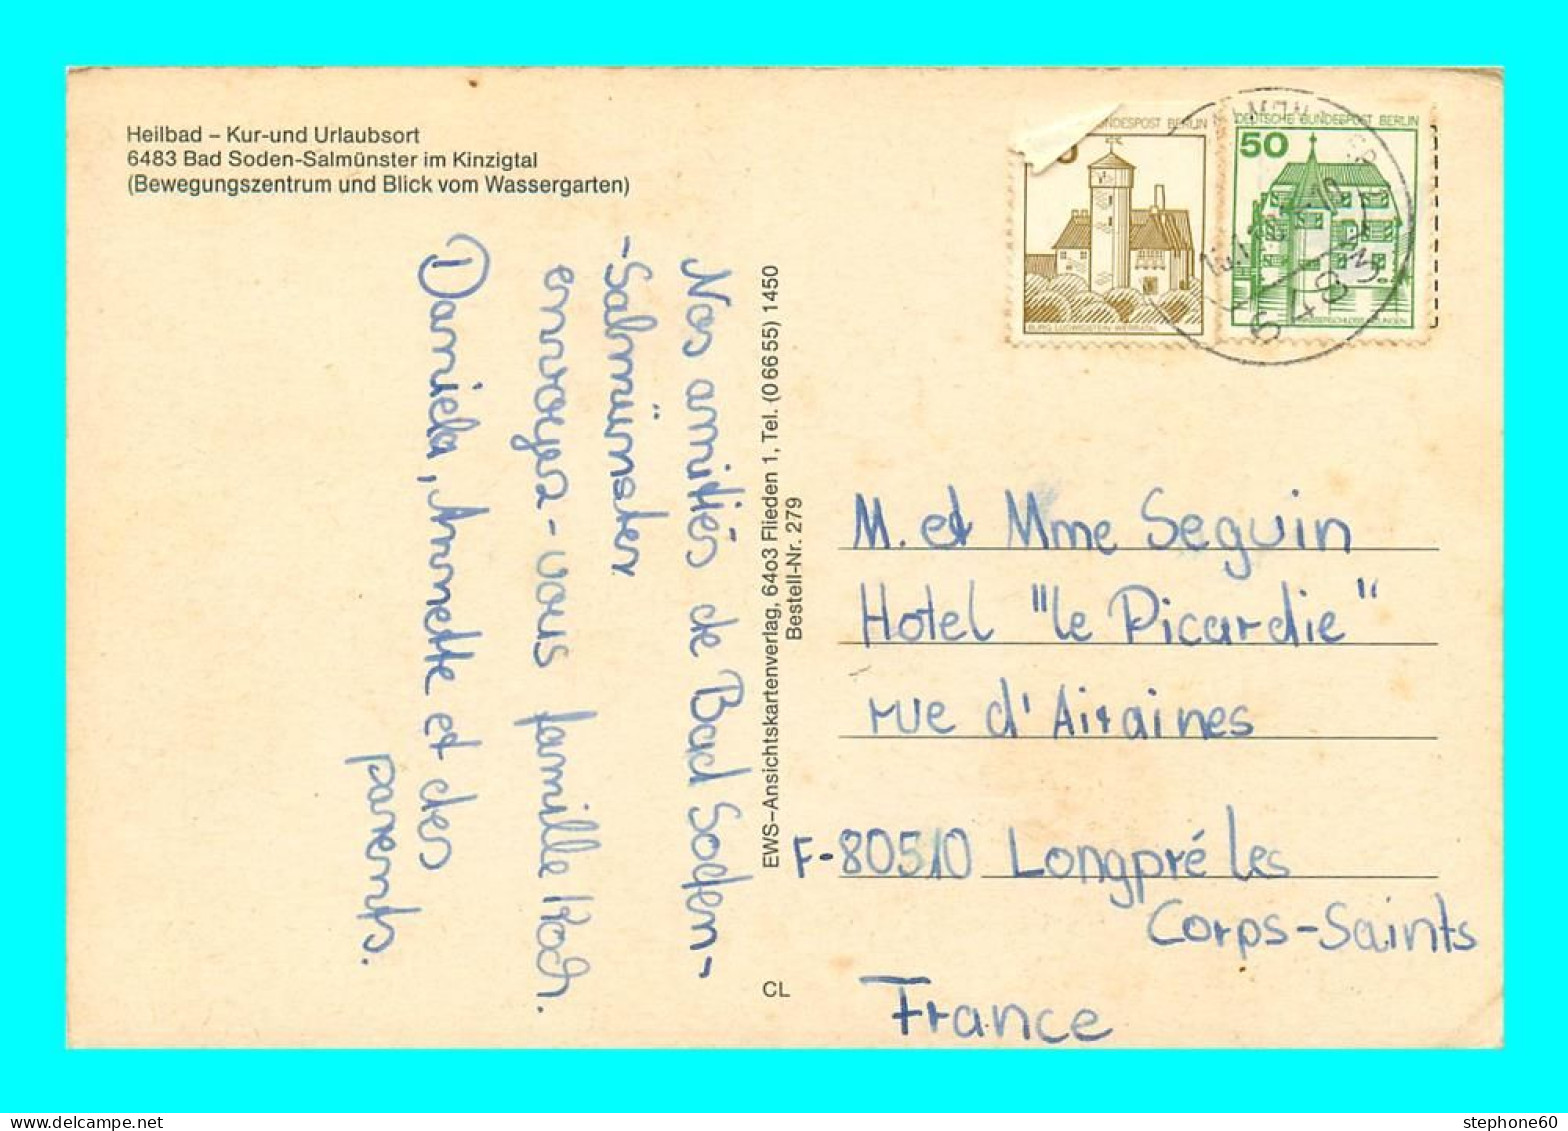 Heilbad – Kur-und Urlaubsort
6483 Bad Soden-Salmünster im Kinzigtal
(Bewegungszentrum und Blick vom Wassergarten)
Nos amitiés de Bad Soden-
-Salmünster
envoyez-vous famille Koch.
① Daniela, Annette et des
parents.
EWS–Ansichtskartenverlag, 64o3 Flieden 1, Tel. (0 66 55) 1450
Bestell-Nr. 279
CL
NDESPOST BERLIN
BURG LUDWIGSTEIN WERRATAL
DEUTSCHE BUNDESPOST BERLIN
50
6483
M. et Mme Seguin
Hotel "le Picardie"
rue d'Airaines
F-80510 Longpré les
Corps-Saints
France
stephone60